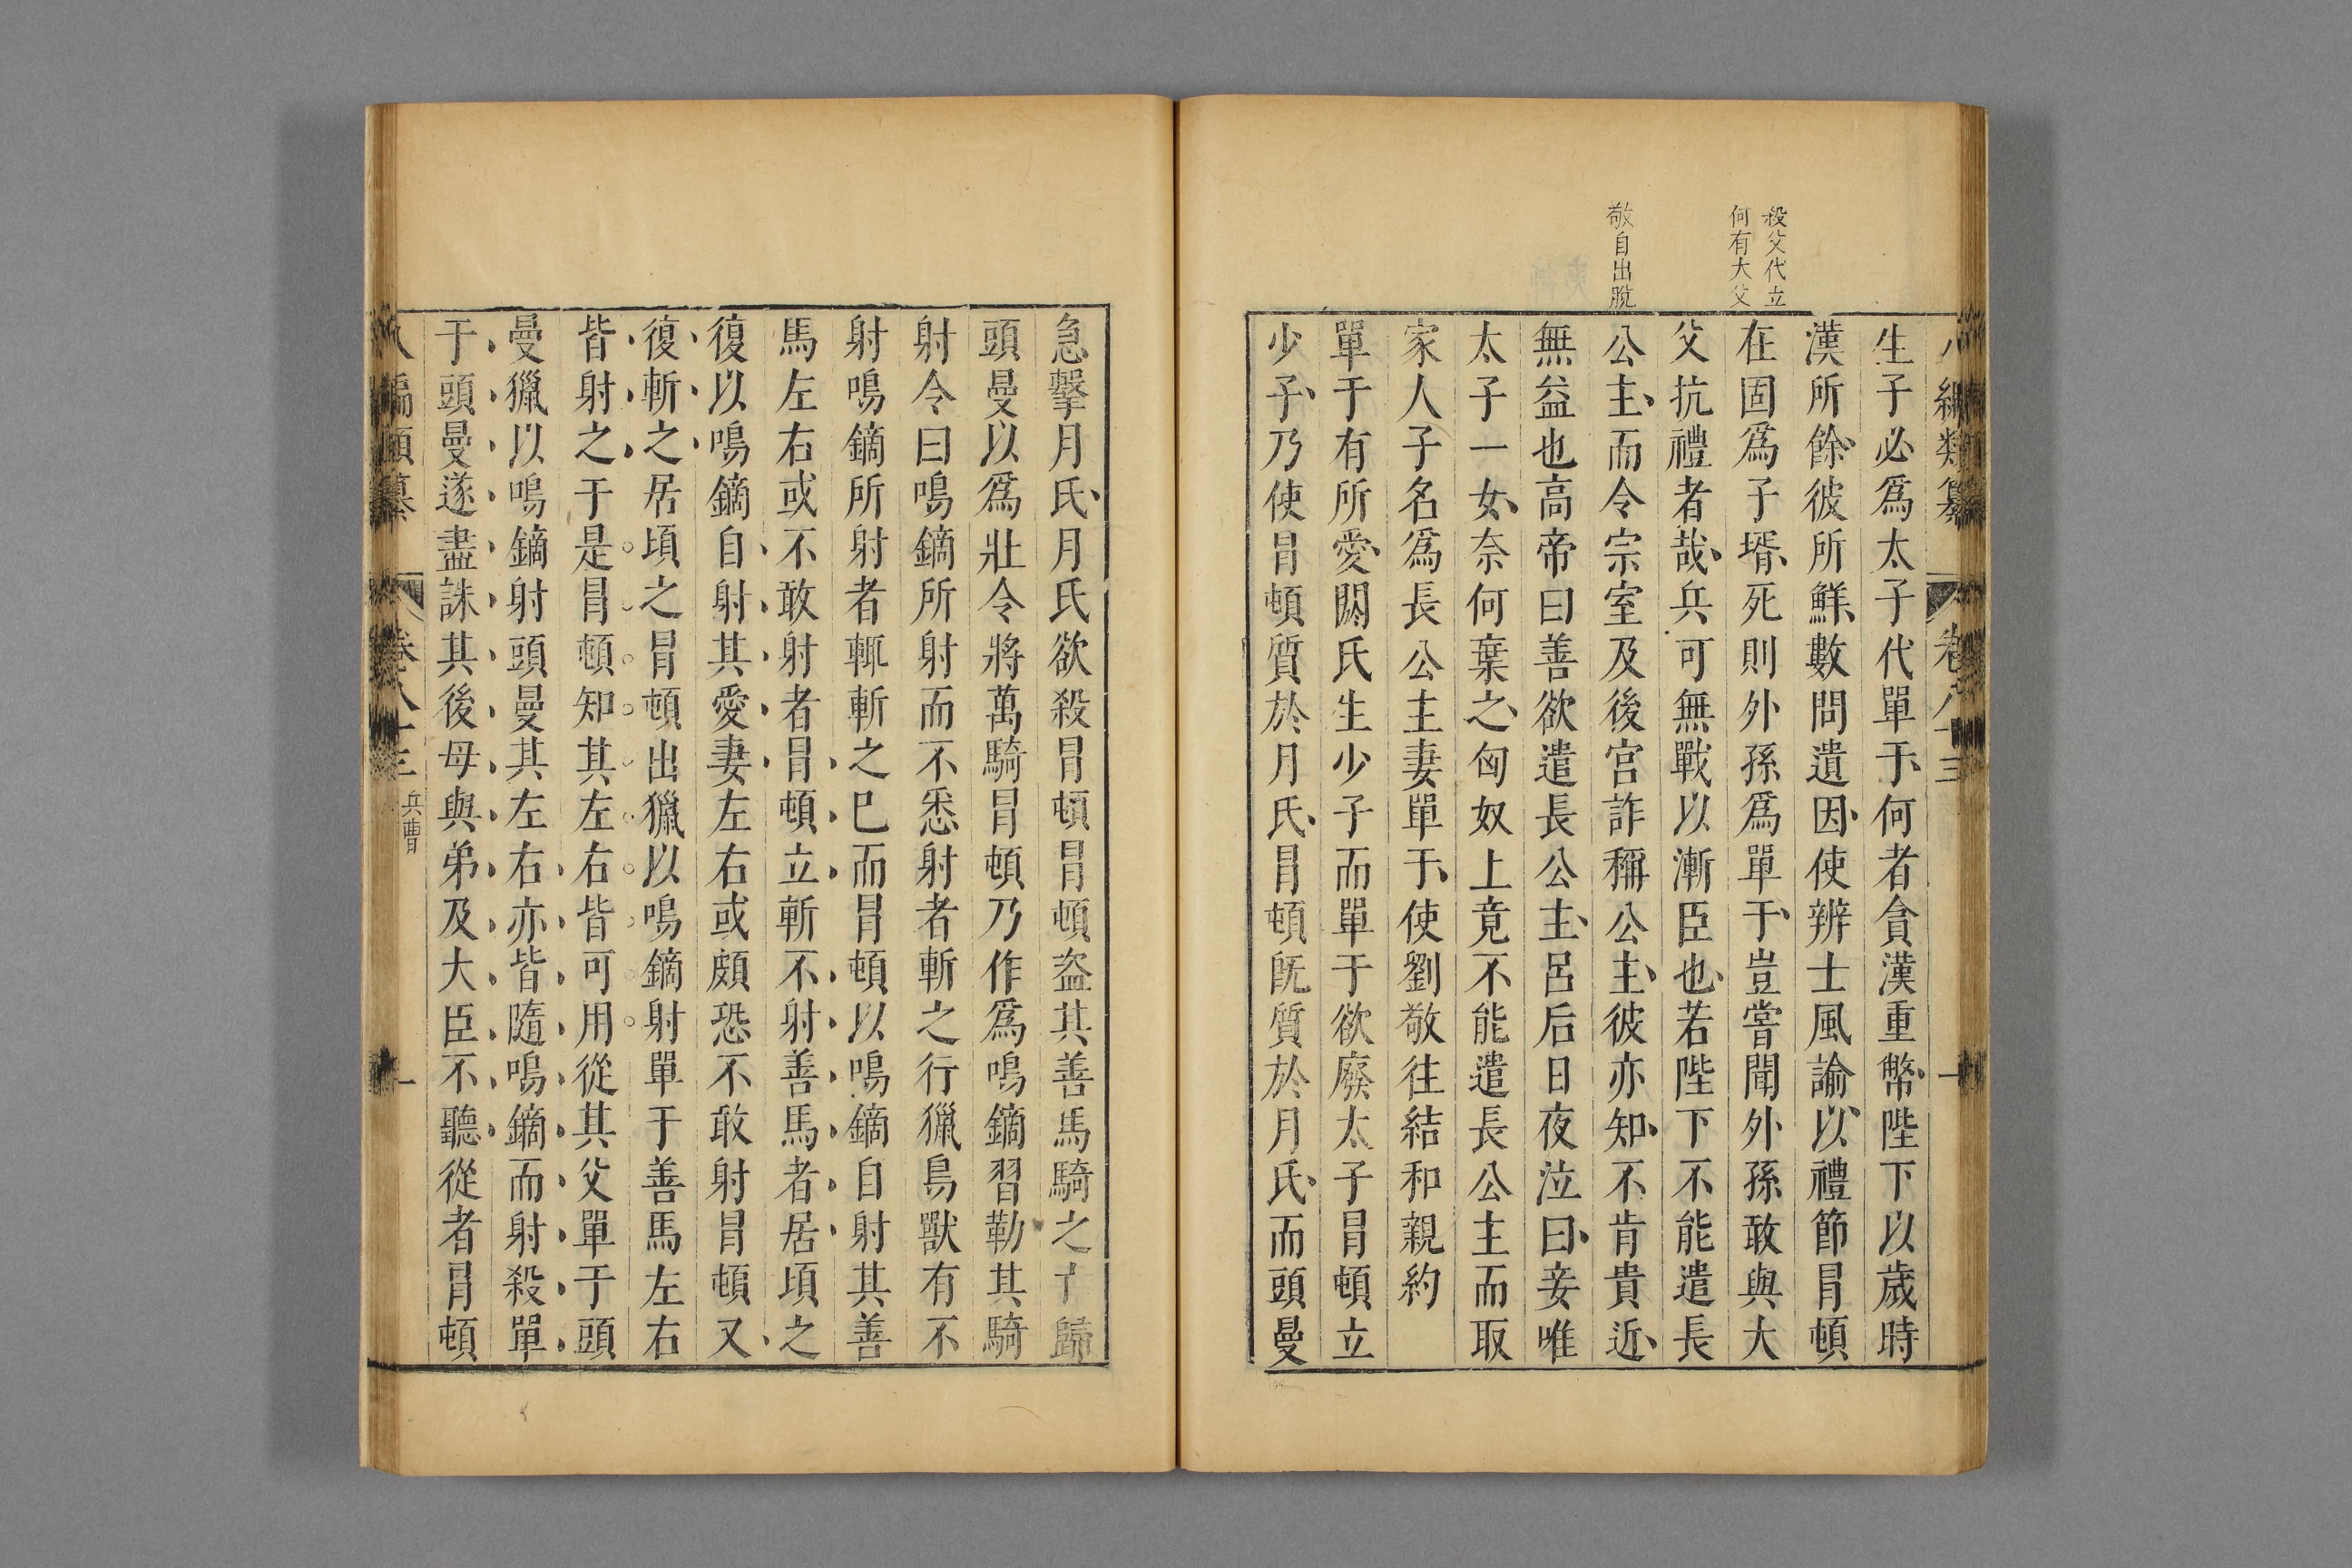 殺父代立
何有大父
敬自出脫
生子必爲太子代單于何者貪漢重幣陛下以歲時
漢所餘彼所鮮數問遺因使辨士風諭以禮節冒頓
在固爲子壻死則外孫爲單于豈嘗聞外孫敢與大
父抗禮者哉兵可無戰以漸臣也若陛下不能遣長
公主而令宗室及後宮詐稱公主彼亦知不肯貴近
無益也高帝曰善欲遣長公主呂后日夜泣曰妾唯
太子一女奈何棄之匈奴上竟不能遣長公主而取
家人子名爲長公主妻單于使劉敬往結和親約
單于有所愛閼氏生少子而單于欲廢太子冒頓立
少子乃使冒頓質於月氏冒頓旣質於月氏而頭曼
急擊月氏月氏欲殺冒頓冒頓盜其善馬騎之亡歸
頭曼以爲壯令將萬騎冒頓乃作爲鳴鏑習勒其騎
射令曰鳴鏑所射而不悉射者斬之行獵鳥獸有不
射鳴鏑所射者輒斬之已而冒頓以鳴鏑自射其善
馬左右或不敢射者冒頓立斬不射善馬者居頃之
復以鳴鏑自射其愛妻左右或頗恐不敢射冒頓又
復斬之居頃之冒頓出獵以鳴鏑射單于善馬左右
皆射之于是冒頓知其左右皆可用從其父單于頭
曼獵以鳴鏑射頭曼其左右亦皆隨鳴鏑而射殺單
于頭曼遂盡誅其後母與弟及大臣不聽從者冒頓
八編類纂 卷八十三 兵曹